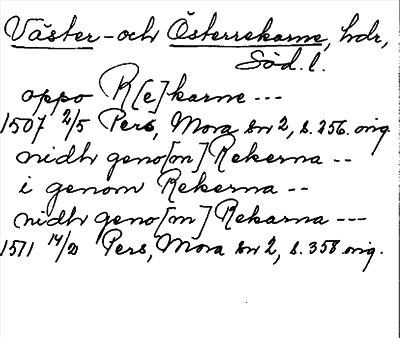 Väster- och Österrekarne, hdr,
Söd. l.
oppo R[e]karne ---
1507 2/5 Pers, Mora sn 2, s. 256. orig
nidh geno[m] Rekerna --
i genom Rekerna --
nidh geno[m] Rekarna ---
1511 14/2 Pers, Mora sn 2, s. 358 orig.